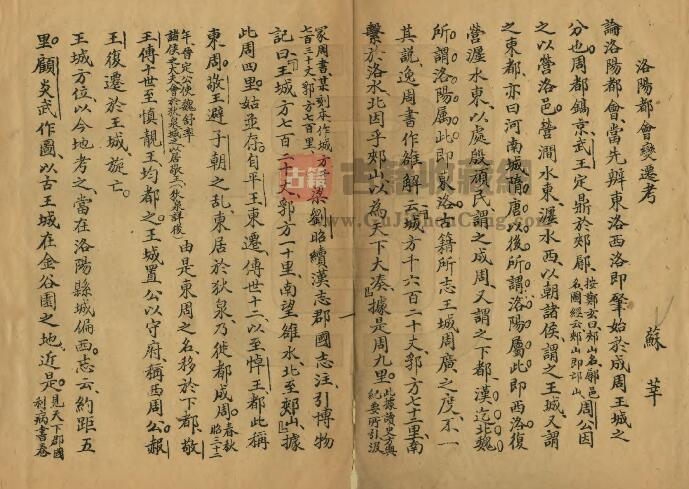 洛陽都會變遷考
蘇莘
論洛陽都會、當先辨東洛西洛、即肇始於成周王城之
分也。周都鎬京、武王定鼎於郟鄏、按鄭玄曰郟山名鄏邑名圖經云郟山即邙山周公因
之以營洛邑。營澗水東、瀍水西、以朝諸侯、謂之王城、又謂
之東都、亦曰河南城、隋唐以後所謂洛陽屬此、即西洛。復
營瀍水東、以處殷頑民、謂之成周、又謂之下都、漢迄北魏
所謂洛陽屬此、即東洛。古籍所志王城周廣之度、不一
其說、逸周書作雒解云、城方千六百二十丈、郛方七十二里、南
繫於洛水、北因乎郟山、以為天下大湊。據是周九里。此據讀史方輿紀要所引汲
冢周書某刻本作城方千七百二十丈郛方七百里、梁劉昭續漢志郡國志注、引博物
記曰、王城方七百二十丈、郛方一十里、南望雒水、北至郟山、據
此周四里。姑並存。自平王東遷、傳世十二、以至悼王、都此稱
東周、敬王避子朝之亂、東居於狄泉、乃徙都成周。春秋昭三十二
年晉定公使魏舒率諸侯之大夫會於狄泉城之以居敬王（狄泉詳後）由是東周之名、移於下都、敬
王傳十世至慎靚王、均都之。王城置公以守府、稱西周公、赧
王復遷於王城、旋亡。
王城方位、以今地考之、當在洛陽縣城偏西、志云、約距五
里。顧炎武作圖、以古王城在金谷園之地、近是。見天下郡國利病書卷
古籍收藏網
www.GuJiShouCang.com